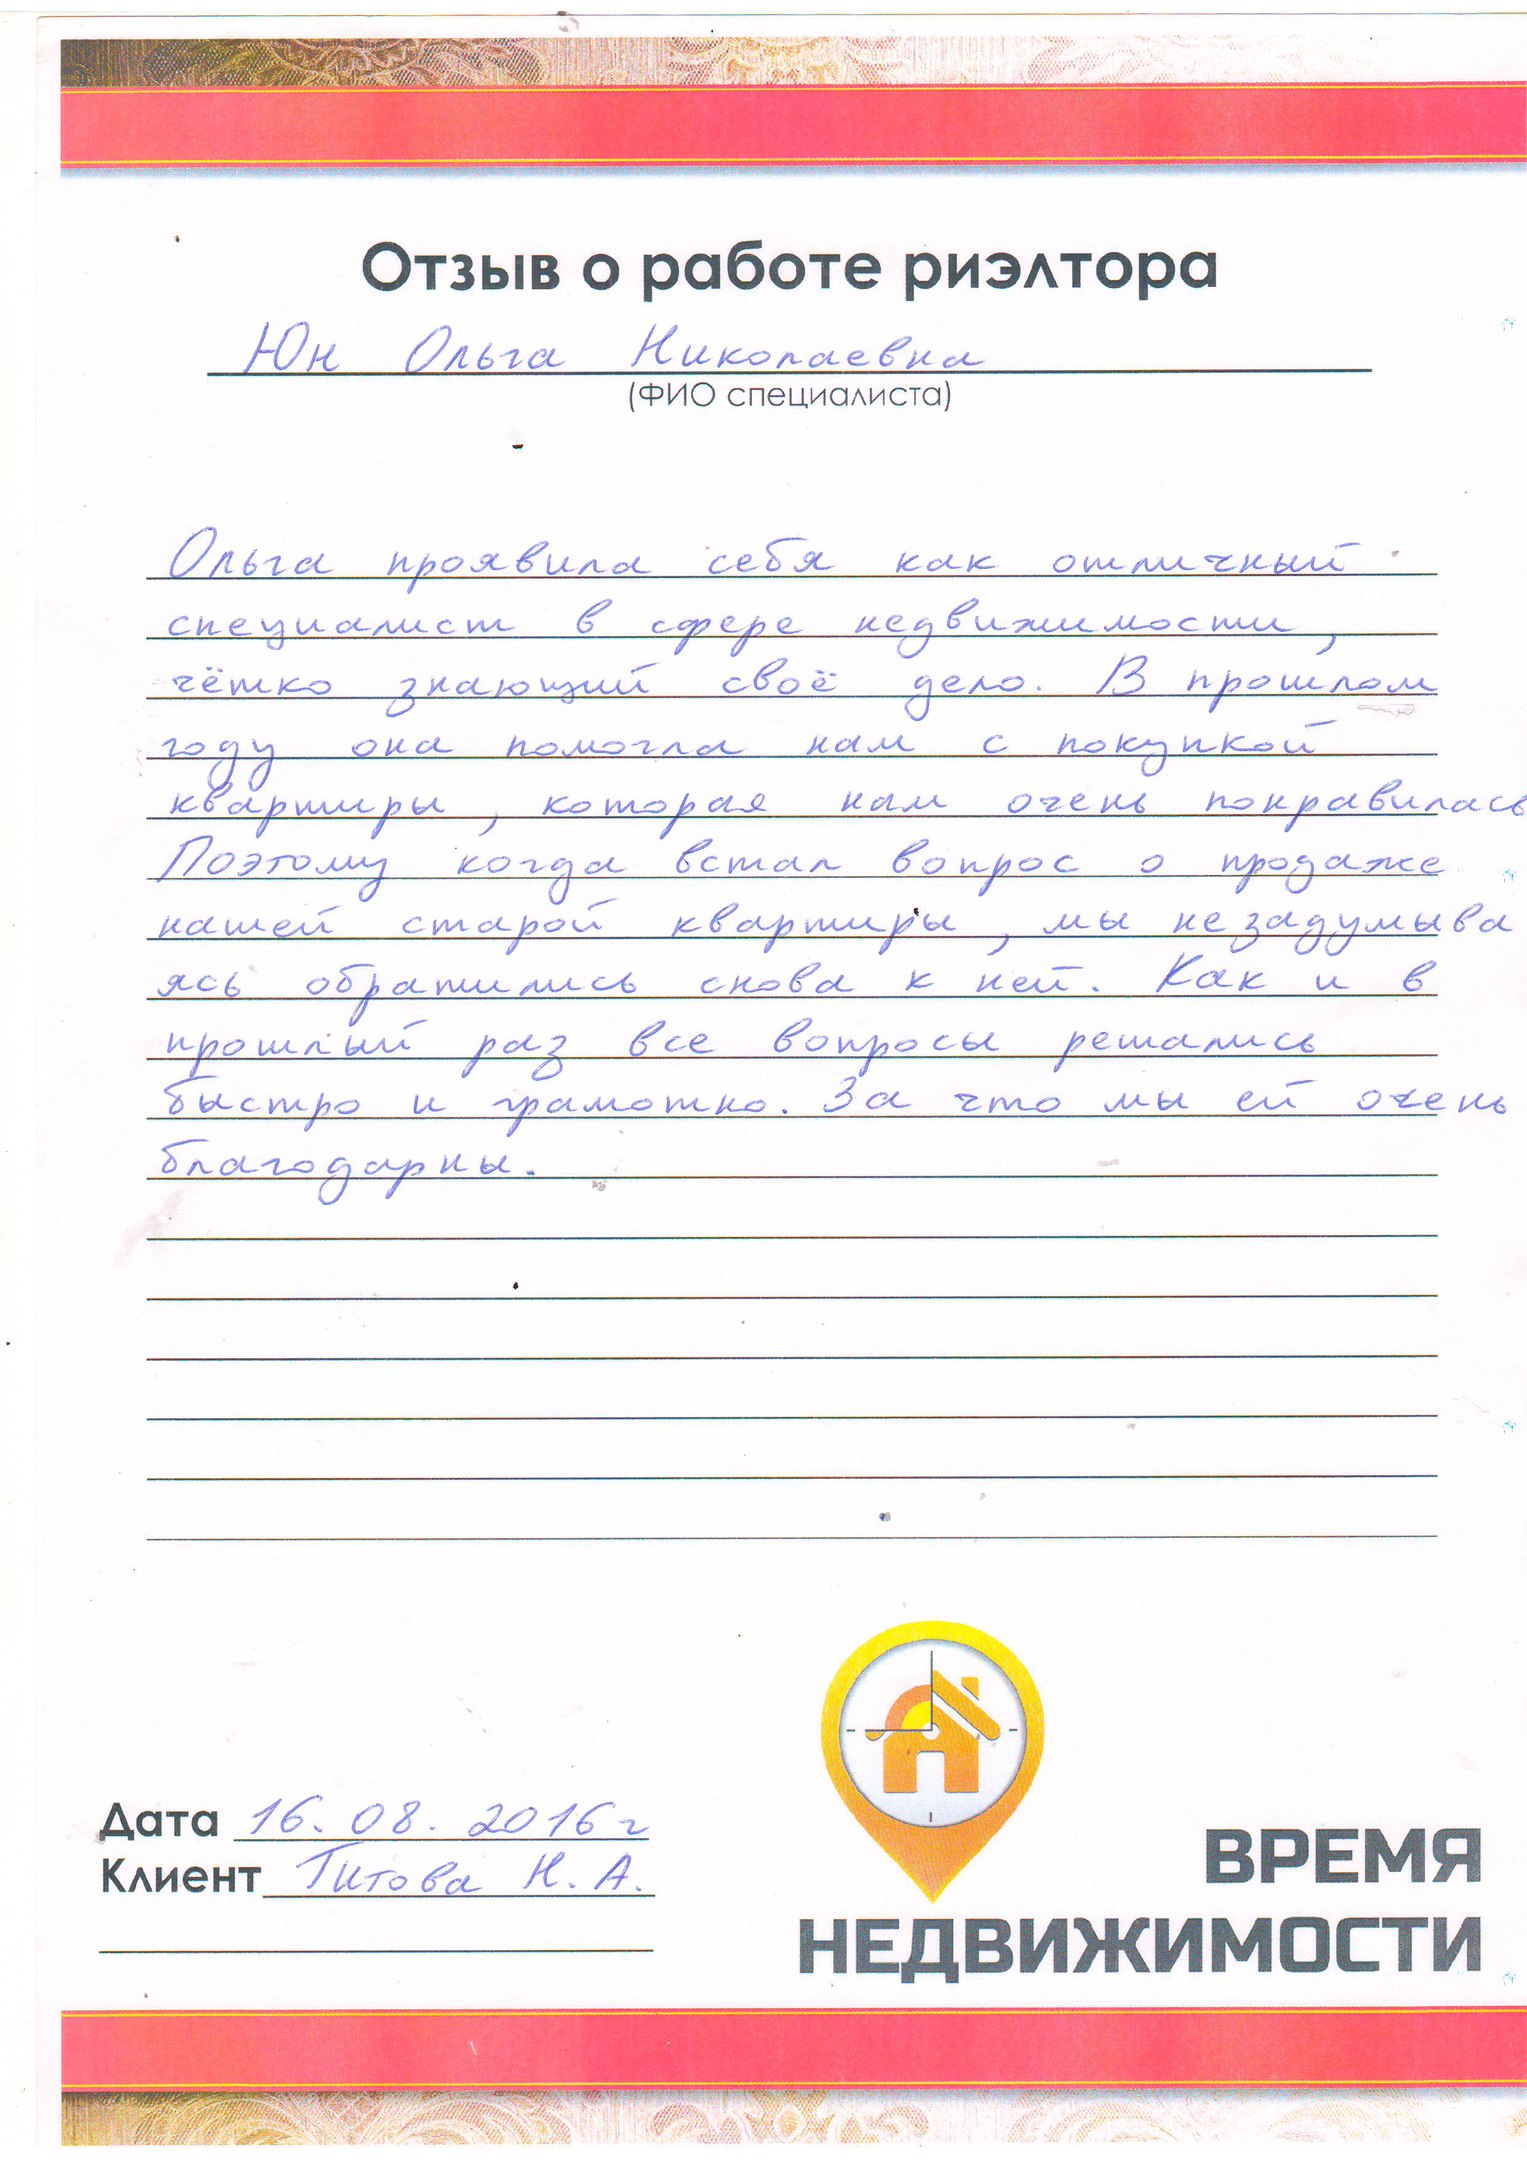 Отзыв о работе риэлтора
Юн Ольга Николаевна
(ФИО специалиста)
Ольга проявила себя как отличный
специалист в сфере недвижимости,
чётко знающий своё дело. В прошлом
году она помогла нам с покупкой
квартиры, которая нам очень понравилась
Поэтому когда встал вопрос о продаже
нашей старой квартиры, мы незадумыва
ясь обратились снова к ней. Как и в
прошлый раз все вопросы решались
быстро и грамотно. За что мы ей очень
благодарны.
Дата 16.08.2016г
Клиент Титова Н.А.
ВРЕМЯ
НЕДВИЖИМОСТИ